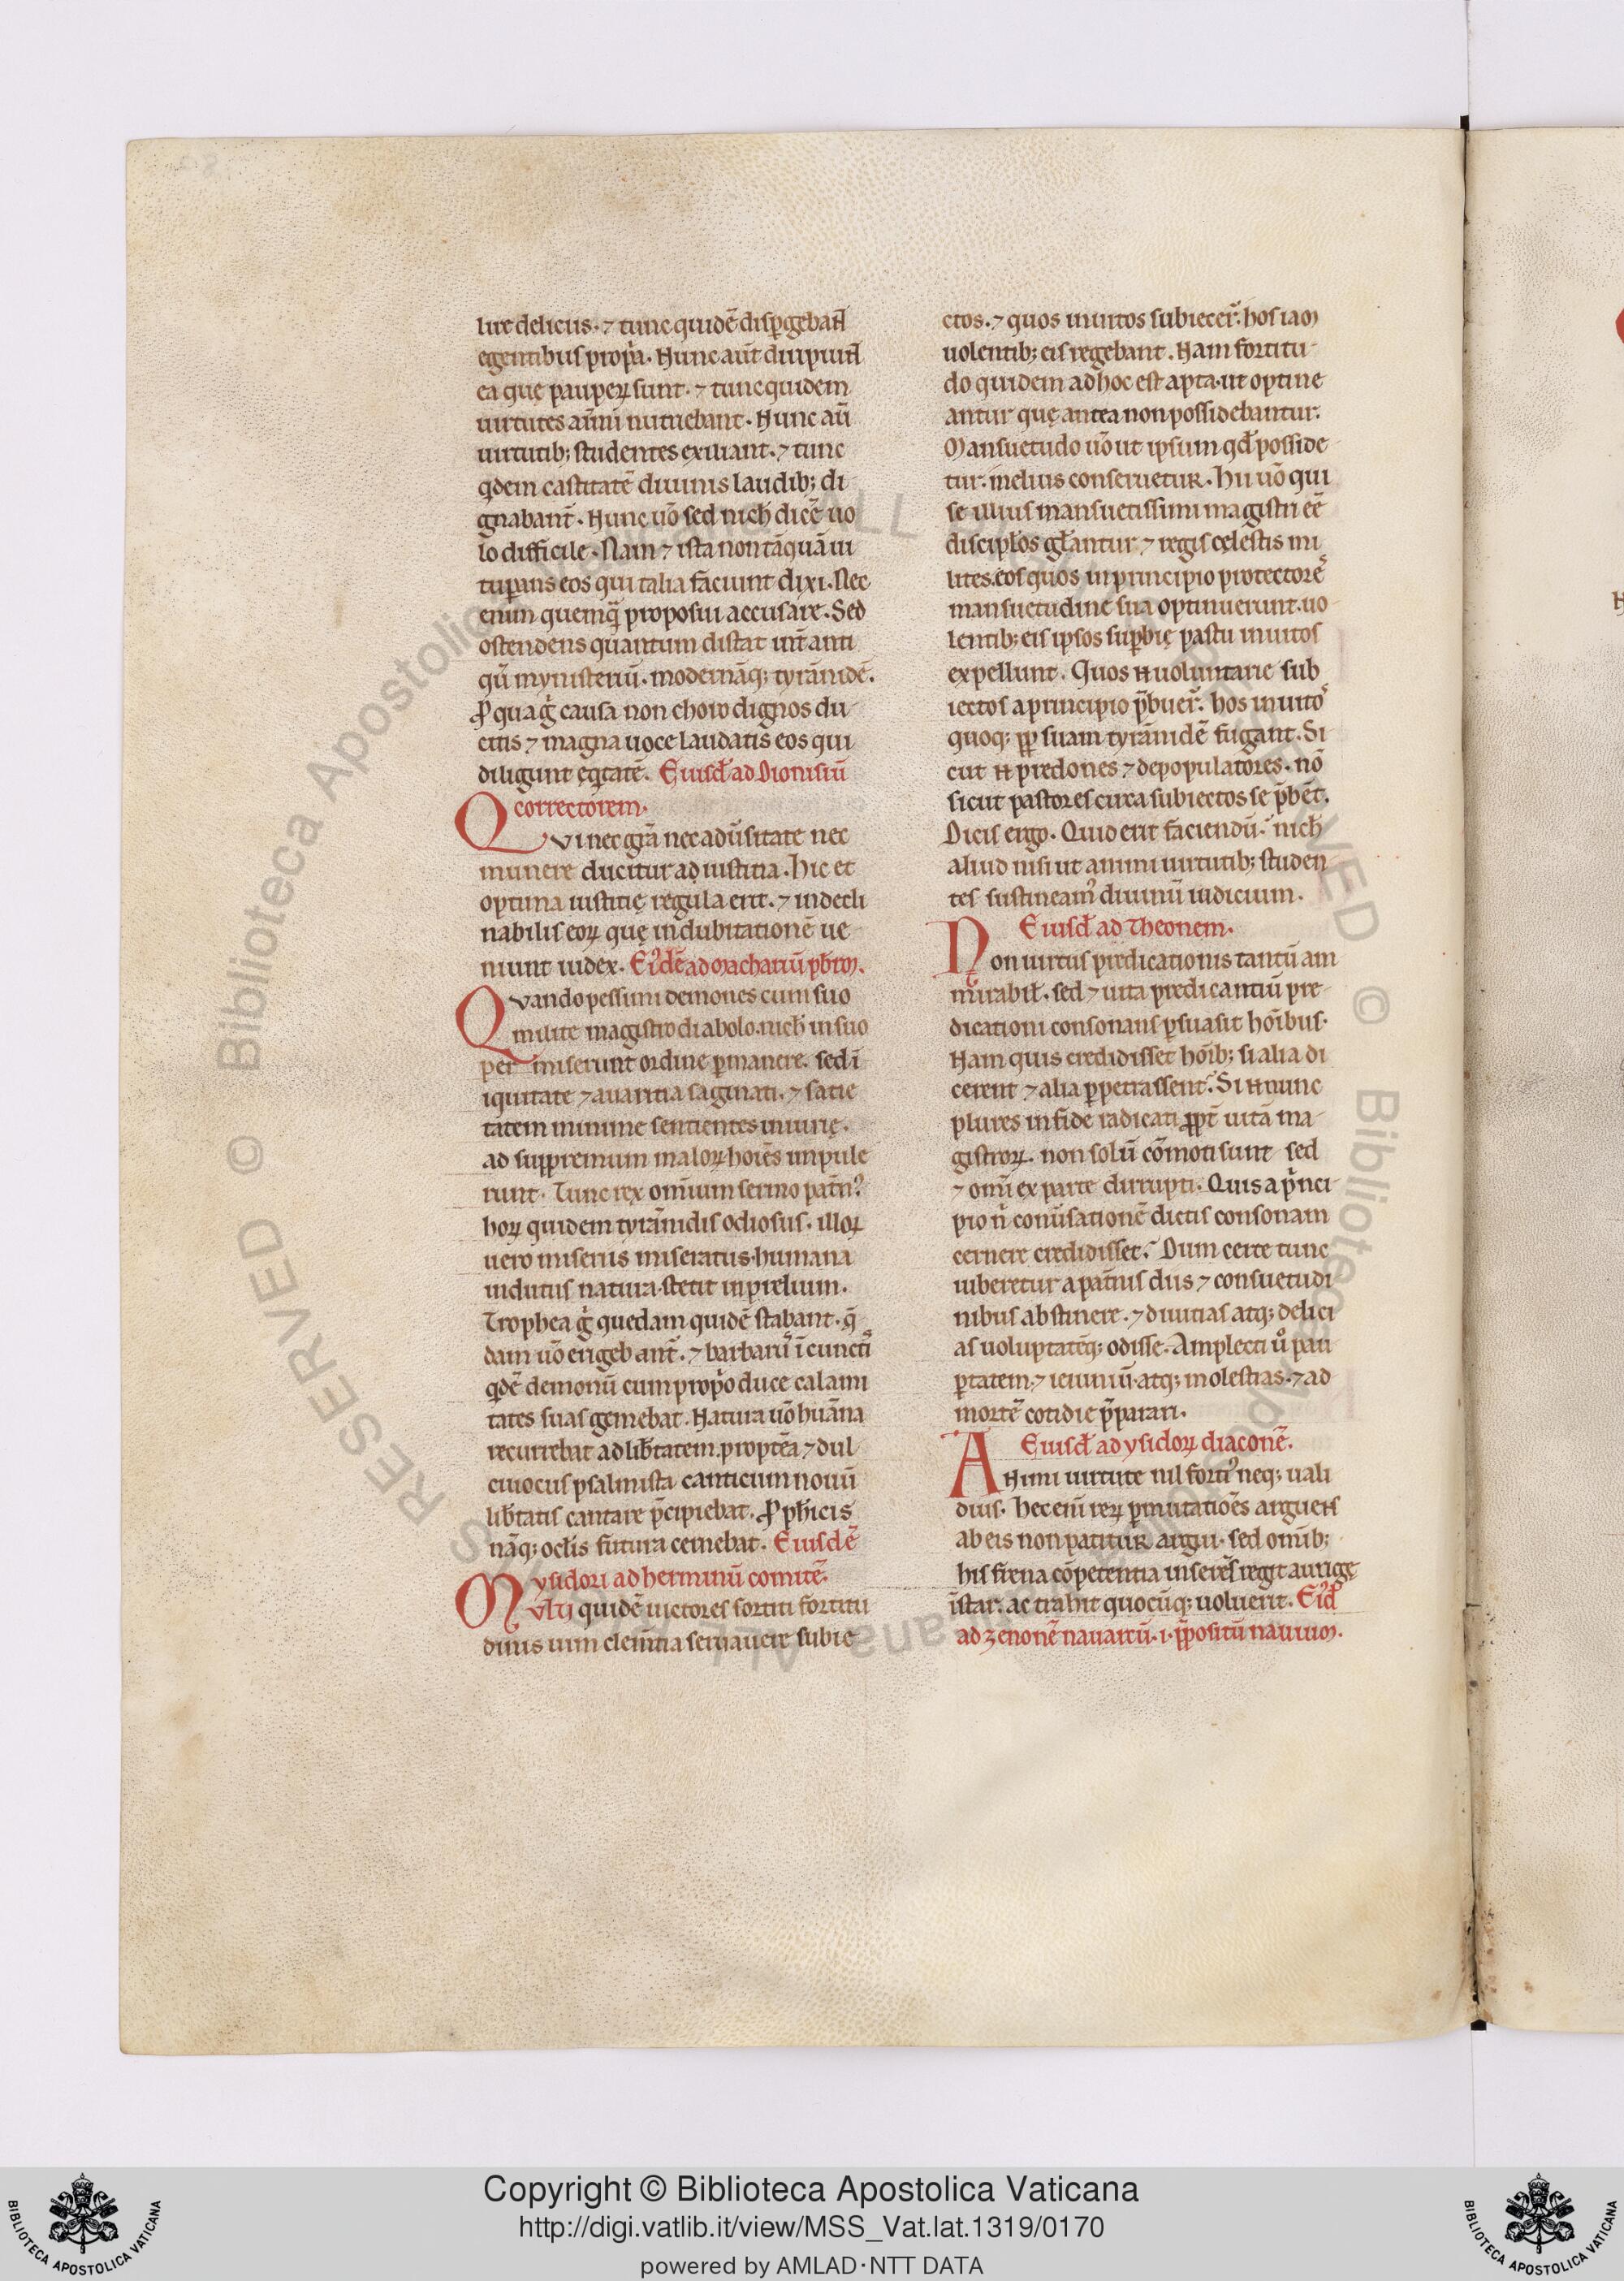 lire deliciis. ⁊ tunc quidē disp̄gebant
egentibus prop̄a. Nunc aūt diripiunt
ea quę pauperꝝ sunt. ⁊ tunc quidem
uirtutes aīmi nutriebant. Nunc aū
uirtutib; studentes exiliant. ⁊ tunc
qdem castitatē diuinis laudib; di
gnabant̄. Nunc uō sed nich̄ dicē uo
lo difficile. Nam ⁊ ista non tāquā ui
tup̄ans eos qui talia faciunt dixi. Nec
enim quemq̄ proposui accusare. Sed
ostendens quantum distat int̄ anti
qū mynisteriū. modernāq; tyrānidē.
P qua g̊ causa non choro dignos du
citis ⁊ magna uoce laudatis eos qui
diligunt eq̇tatē. Eiusd̄ ad Dionisiū
correctorem.
Qvi nec grā nec adūsitate nec
munere ducitur ad iustitia. hic et
optima iustitię regula erit. ⁊ indecli
nabilis eoꝝ quę in dubitationē ue
niunt iudex. Ei'dē ad Machariū pb̄rm.
Qvando pessimi demones cum suo
milite magistro diabolo. nich̄ in suo
per miserunt ordine p̄manere. sed ī
iquitate ⁊ auaritia saginati. ⁊ satie
tatem minime sentientes iniurię.
ad suppremum maloꝝ hoīes impule
runt. Tunc rex omīum sermo pat̄n'.
hoꝝ quidem tyrānidis odiosus. illoꝝ
uero miseriis miseratus. humana
indutus natura. stetit in prelium.
Trophea g̊ quedam quidē stabant. q̄
dam uō erigebant̄. ⁊ barbarū' ī cuncti'
q̇dē demonū cum prop̄o duce calami
tates suas gemebat. Natura uō huāna
recurrebat ad lib̄tatem. proptēa ⁊ dul
ciuocus psalmista canticum nouū
lib̄tatis cantare p̄cipiebat. P ph̄icis
nāq; ocl̄is futura cernebat. Eiusdē
ysidori ad herminū comitē.
Mvlti quidē uictores sortiti fortitu
dinis uim clem̄tia seruauere subie
ctos. ⁊ quos inuitos subiecer̄. hos iam
uolentib; eis regebant. Nam fortitu
do quidem ad hoc est apta. ut optine
antur quę antea non possidebantur.
Mansuetudo uō ut ipsum qd̄ posside
tur. melius conseruetur. Hii uō qui
se illius mansuetissimi magistri eē
discipl̄os gl̄antur ⁊ regis cęlestis mi
lites. eos quos in principio protectore'
mansuetudine sua optinuerunt. uo
lentib; eis ipsos sup̄bię pastu inuitos
expellunt. Quos N uoluntarie sub
iectos a principio p̄buer̄. hos inuito'
quoq; pp̄ suam tyrānidē fugant. Si
cut N predones ⁊ depopulatores. nō
sicut pastores cura subiectos se p̄bēt.
Dicis ergo. Quid erit faciendū. nich̄
aliud nisi ut animi uirtutib; studen
tes sustineam' diuinū iudicium.
Eiusd̄ ad Theonem.
Non uirtus predicationis tantū am
mirabil̄. sed ⁊ uita predicantiū pre
dicationi consonans p̄suasit hoībus.
Nam quis credidisset hoīb; si alia di
cerent ⁊ alia p̄petrassent. Si N nunc
plures in fide radicati pp̄t uitā ma
gistroꝝ. non solū cōmoti sunt sed
⁊ omī ex parte dirrupti. Quis a p̄nci
pio n̄ conūsationē dictis consonam
cernere credidisset. Dum certe tunc
iuberetur a patn̄is diis ⁊ consuetudi
nibus abstinere. ⁊ diuitias atq; delici
as uoluptatēq; odisse. Amplecti ů pau
p̄tatem. ⁊ ieiuniū. atq; molestias. ⁊ ad
mortē cotidie p̄parari.
Eiusd̄ ad ysidoꝝ diaconē.
Animi uirtute nil forti' neq; uali
dius. Hec enī reꝝ p̄mutatioēs arguens
ab eis non patitur argui. sed omīb;
his frena cōpetentia inserēs regit aurigę
īstar. ac trahit quocūq; uoluerit. Ei'd̄
ad zenonē nauarcū. i. pp̄ositū nauium.
Copyright © Biblioteca Apostolica Vaticana
http://digi.vatlib.it/view/MSS_Vat.lat.1319/0170
powered by AMLAD·NTT DATA
BIBLIOTECA APOSTOLICA VATICANA
BIBLIOTECA APOSTOLICA VATICANA